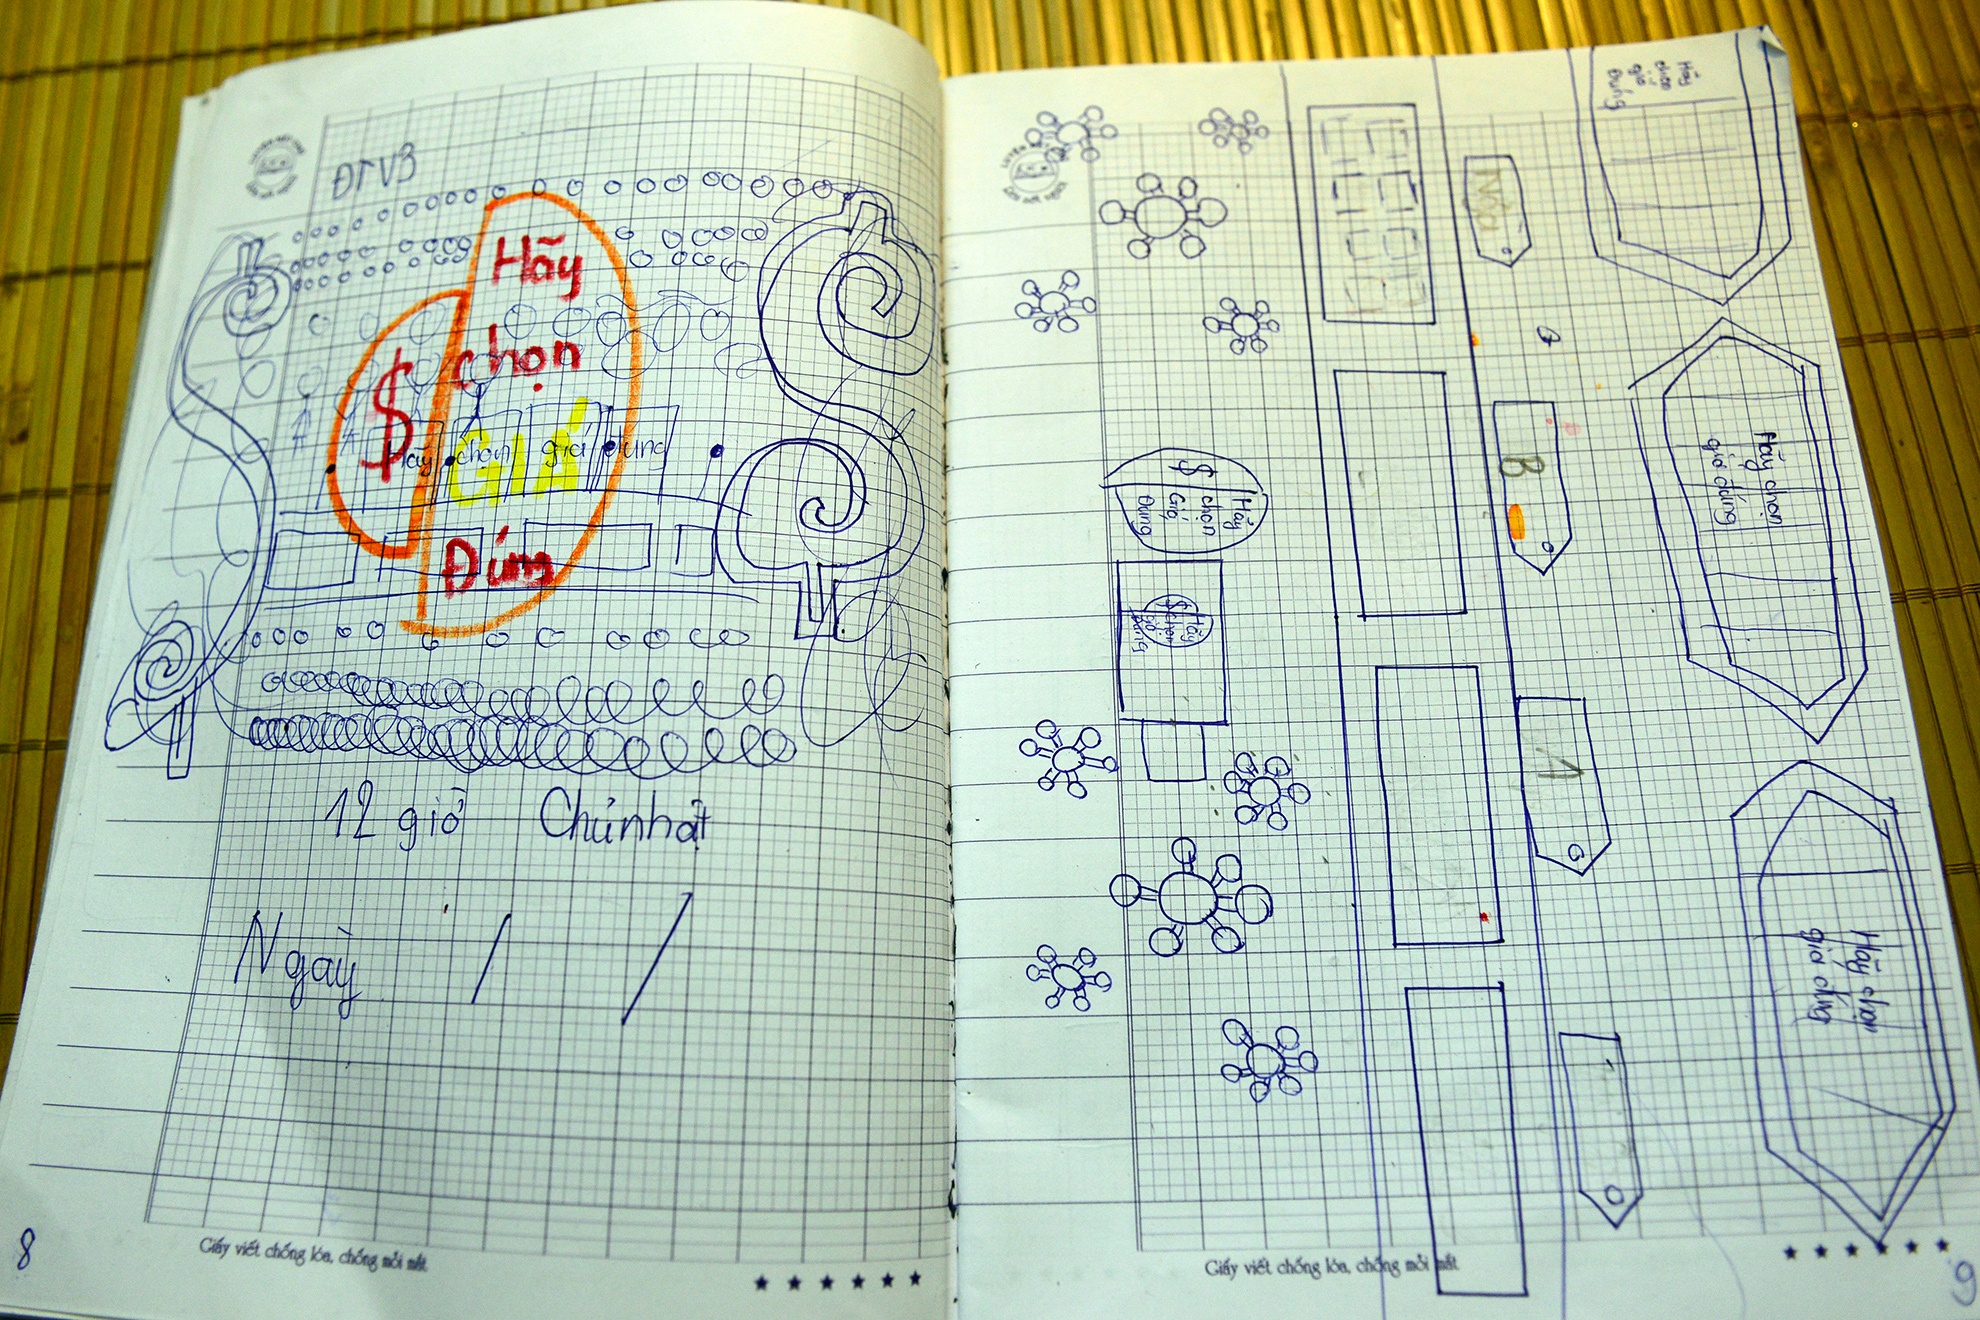 ĐTV3
Hãy
$ chọn
GIÁ
Hãy chọn giá đúng
Đúng
12 giờ Chủ nhật
Ngày / /
8
Giấy viết chống lóa, chống mỏi mắt
★ ★ ★ ★ ★ ★
Hãy
chọn
giá
Đúng
B
A
Hãy chọn
giá đúng
$
Hãy
chọn
Giá
Đúng
$ Hãy
chọn
giá
đúng
Hãy chọn
giá đúng
Giấy viết chống lóa, chống mỏi mắt
★ ★ ★ ★ ★ ★
9